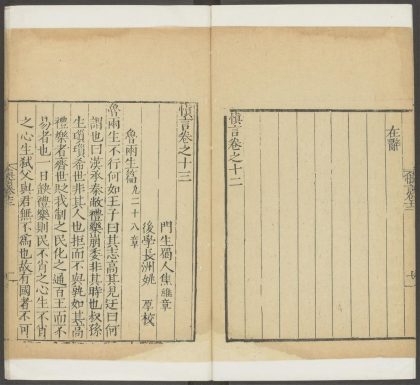 在辭
慎言卷之十二
慎言卷之十三
門生蜀人焦維章
後學長洲姚 校
魯兩生篇凡二十八章
魯兩生不行何如王子曰其志高其見迂曰何
謂也曰漢承秦敝禮樂崩委非其時也叔孫
生瑣瑣希世非其人也拒而不與孰如其高
禮樂者齊世 我制之民化之通百王而不
易者也一日缺禮樂則民不肖之心生不肖
之心生弒父與君無不爲也故有國者不可